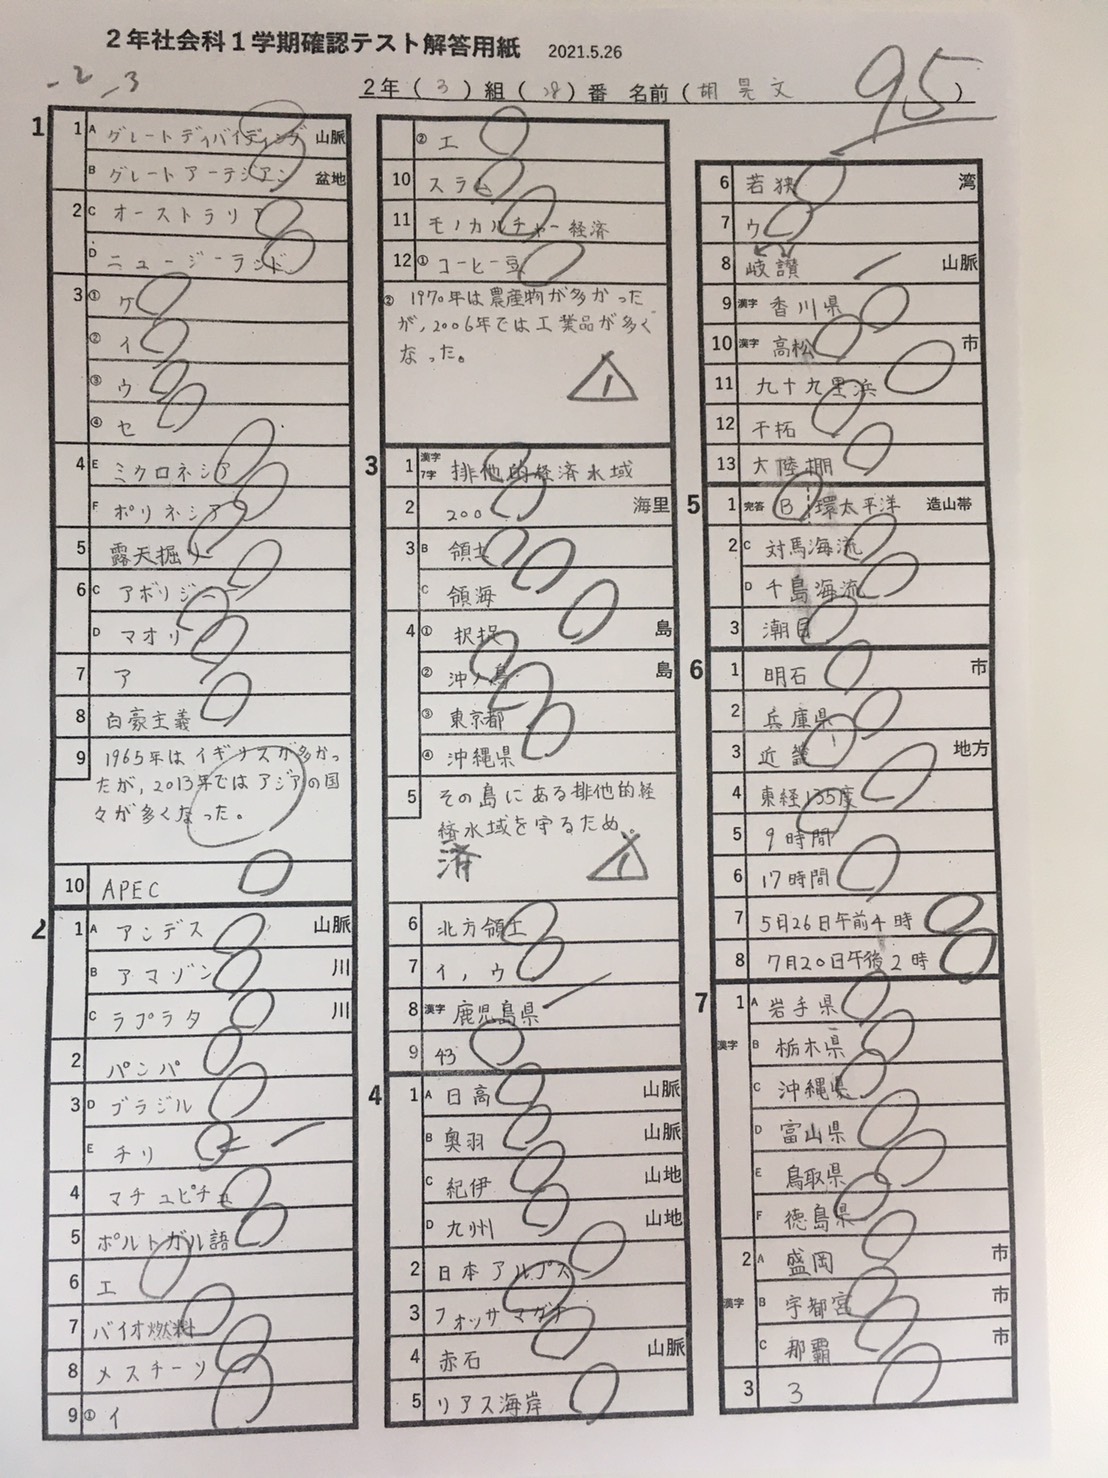 2年社会科1学期確認テスト解答用紙 2021.5.26
-2 -3
2年(3)組(28)番 名前(胡 晃 文) 95
1
1 A グレートディバイディング 山脈
B グレートアーテジアン 盆地
2 C オーストラリア
D ニュージーランド
3 ① ケ
② イ
③ ウ
④ セ
4 E ミクロネシア
F ポリネシア
5 露天掘り
6 C アボリジニ
D マオリ
7 ア
8 白豪主義
9 1965年はイギリスが多かっ
たが,2013年ではアジアの国
々が多くなった。
10 APEC
2
1 A アンデス 山脈
B アマゾン 川
C ラプラタ 川
2 パンパ
3 D ブラジル
E チリ
4 マチュピチュ
5 ポルトガル語
6 エ
7 バイオ燃料
8 メスチーソ
9 ① イ
② エ
10 スラム
11 モノカルチャー経済
12 ① コーヒー豆
② 1970年は農産物が多かった
が,2006年では工業品が多く
なった。
1
3
1 漢字7字 排他的経済水域
2 200 海里
3 B 領土
C 領海
4 ① 択捉 島
② 沖ノ鳥 島
③ 東京都
④ 沖縄県
5 その島にある排他的経
済水域を守るため。
済
1
6 北方領土
7 イ,ウ
8 漢字 鹿児島県
9 43
4
1 A 日高 山脈
B 奥羽 山脈
C 紀伊 山地
D 九州 山地
2 日本アルプス
3 フォッサマグナ
4 赤石 山脈
5 リアス海岸
6 若狭 湾
7 ウ
8 岐讃 山脈
9 漢字 香川県
10 漢字 高松 市
11 九十九里浜
12 干拓
13 大陸棚
5
1 完答 B 環太平洋 造山帯
2 C 対馬海流
D 千島海流
3 潮目
6
1 明石 市
2 兵庫県
3 近畿 地方
4 東経135度
5 9時間
6 17時間
7 5月26日午前4時
8 7月20日午後2時
7
1 A 岩手県
漢字 B 栃木県
C 沖縄県
D 富山県
E 鳥取県
F 徳島県
2 A 盛岡 市
漢字 B 宇都宮 市
C 那覇 市
3 3